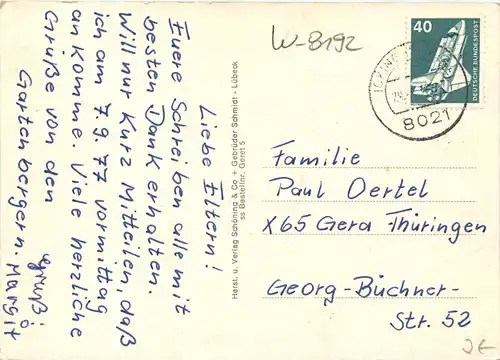 Liebe Eltern!
Euere Schreiben alle mit
besten Dank erhalten.
Will nur Kurz Mitteilen, daß
ich am 7.9.77 vormittag
an komme. Viele herzliche
Grüße von den
Gartenbergern. Margit
Gruß!
Herst. u. Verlag Schöning & Co + Gebrüder Schmidt - Lübeck
ss Bestellnr. Geret 5
W-8192
40
DEUTSCHE BUNDESPOST
8021
Familie
Paul Oertel
X65 Gera Thüringen
Georg-Büchner-
Str. 52